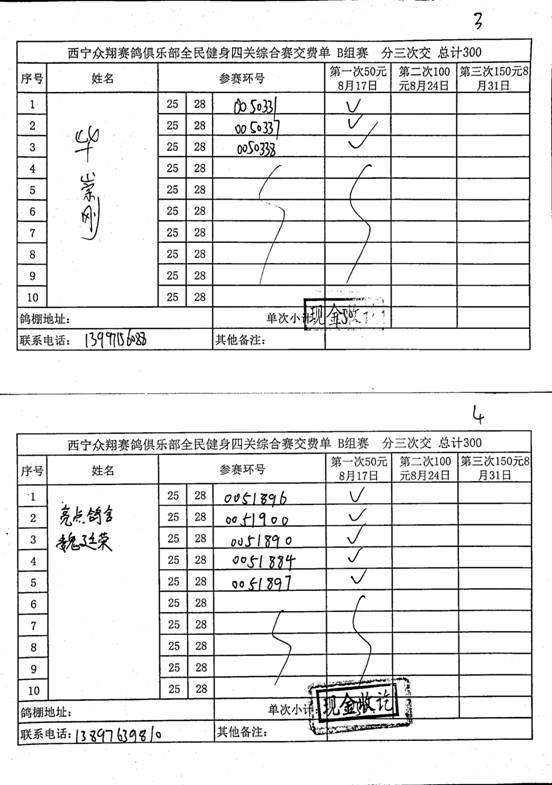 3
西宁众翔赛鸽俱乐部全民健身四关综合赛交费单 B组赛 分三次交 总计300
序号 姓名 参赛环号 第一次50元8月17日 第二次100元8月24日 第三次150元8月31日
1 25 28 0050331 ✓
2 25 28 0050337 ✓
3 25 28 0050338 ✓
4 25 28
5 25 28
6 25 28
7 25 28
8 25 28
9 25 28
10 25 28
华崇刚
鸽棚地址: 单次小计 现金收讫
联系电话: 其他备注:
4
西宁众翔赛鸽俱乐部全民健身四关综合赛交费单 B组赛 分三次交 总计300
序号 姓名 参赛环号 第一次50元8月17日 第二次100元8月24日 第三次150元8月31日
1 25 28 0051896 ✓
2 亮点鸽舍 25 28 0051900 ✓
3 魏廷荣 25 28 0051890 ✓
4 25 28 0051884 ✓
5 25 28 0051897 ✓
6 25 28
7 25 28
8 25 28
9 25 28
10 25 28
鸽棚地址: 单次小计: 现金收讫
联系电话: 13897639810 其他备注: